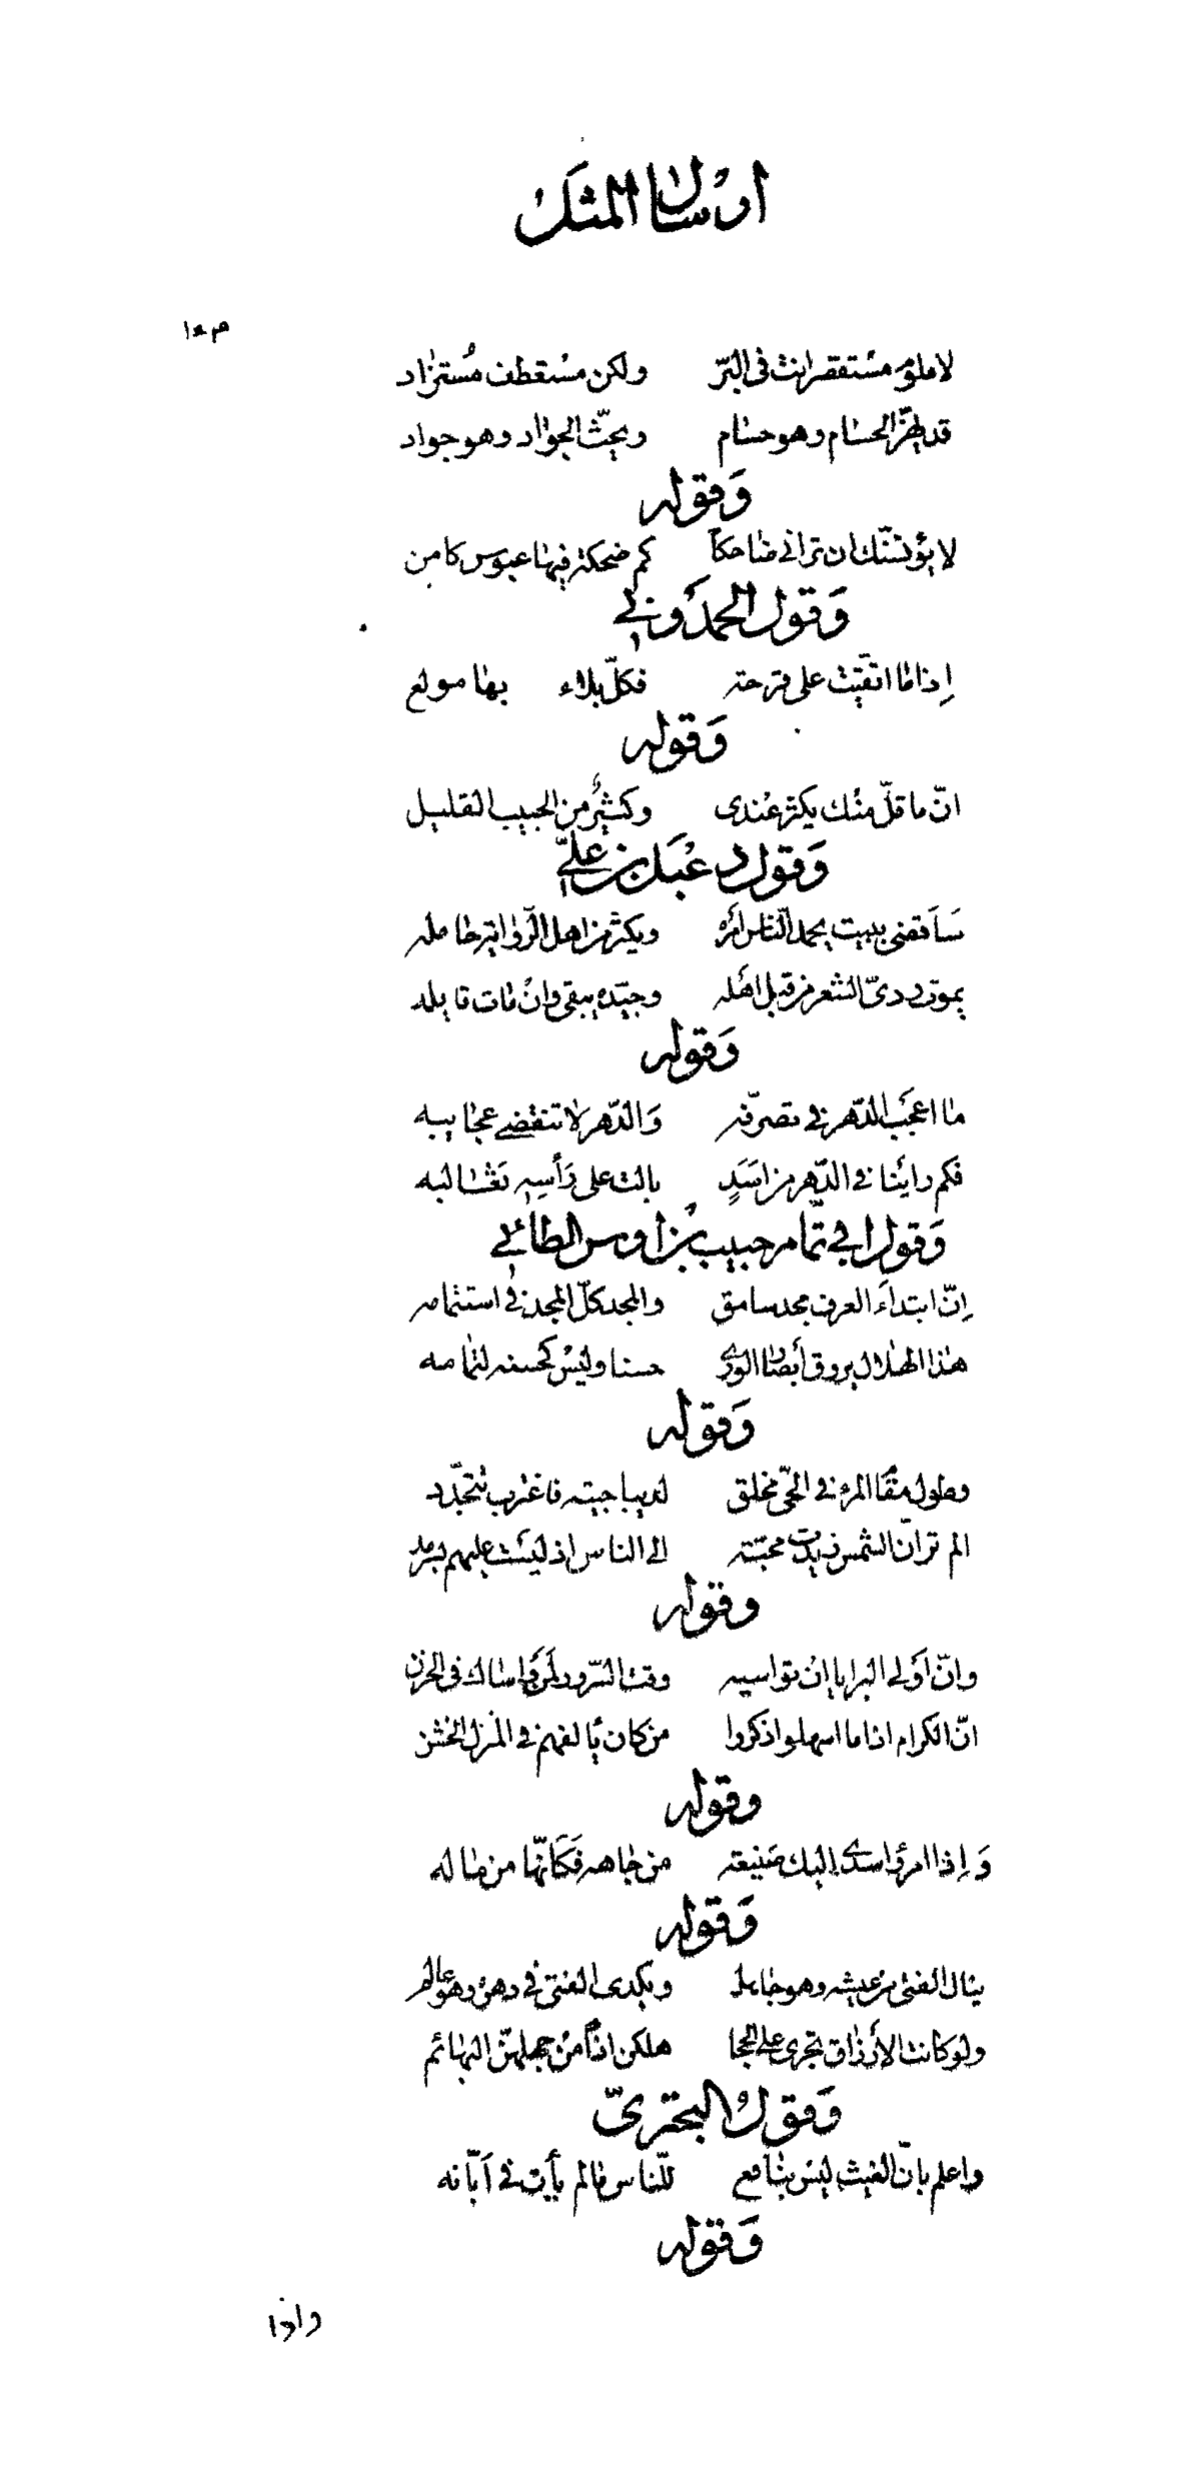 ارسال المثل
م ١٨
لاملوم مستقصر انت فی البرّ ولکن مستعطف مُستزاد
قد یهزّ الحسام وهو حسام ویحثّ الجواد وهو جواد
وَقوله
لا یؤنسنّک ان ترانی ضاحکاً کم ضحکة فیها عبوس کامن
وَقول الحمدَونی
إذا ما اتقیت علی قرحة فکلّ بلاء بها مولع
وَقوله
انّ ما قلّ منک یکثر عندی وکثیرٌ من الحبیب القلیل
وَقول دعبل بن علیّ
سَأقضی ببیت یحمد النّاس أمره ویکثر من اهل الرّوایة حامله
یموت ردیّ الشعر من قبل اهله وجیّده یبقی وان مات قایله
وَقوله
ما اعجَب الدّهر فی تصرّفه وَالدّهر لا تنقضی عجایبه
فکم راینا فی الدّهر من اسَدٍ بالت علی رَأسِه ثعالبه
وَقول ابی تمّام حبیب بْن اوس الطائی
إنّ ابتداءَ العرف مجد سامق والمجد کلّ المجد فی استتمامه
هذا الهلال یروق أبصار الوری حسنا ولیس کحسنه لتمامه
وَقوله
وطول مقام المرء فی الحیّ مخلق لدیباجیته فاغترب تتجدّد
الم تر انّ الشمس زیدت محبّته الی الناس اذ لیست علیهم بسرمد
وقوله
وانّ أَولی البرایا ان تواسیه وقت السّرور لَمَن واساک فی الحزن
انّ الکرام اذا ما اسهلوا ذکروا من کان یالفهم فی المنزل الخشن
وقوله
وَإذا امرؤ اسدی الیک صَنیعة من جاهه فَکَأنّها من ماله
وَقوله
ینال الفتی من عیشه وهو جاهل ویکدی الفتی فی دهره وهو عالم
ولو کانت الأرزاق تجری علی الحجا هلکن اذاً من جهلهنّ البهائم
وَقول البحتریّ
واعلم بانّ الغیث لیس بنافع للنّاس ما لم یأت فی اَبّانه
وَقوله
واذا